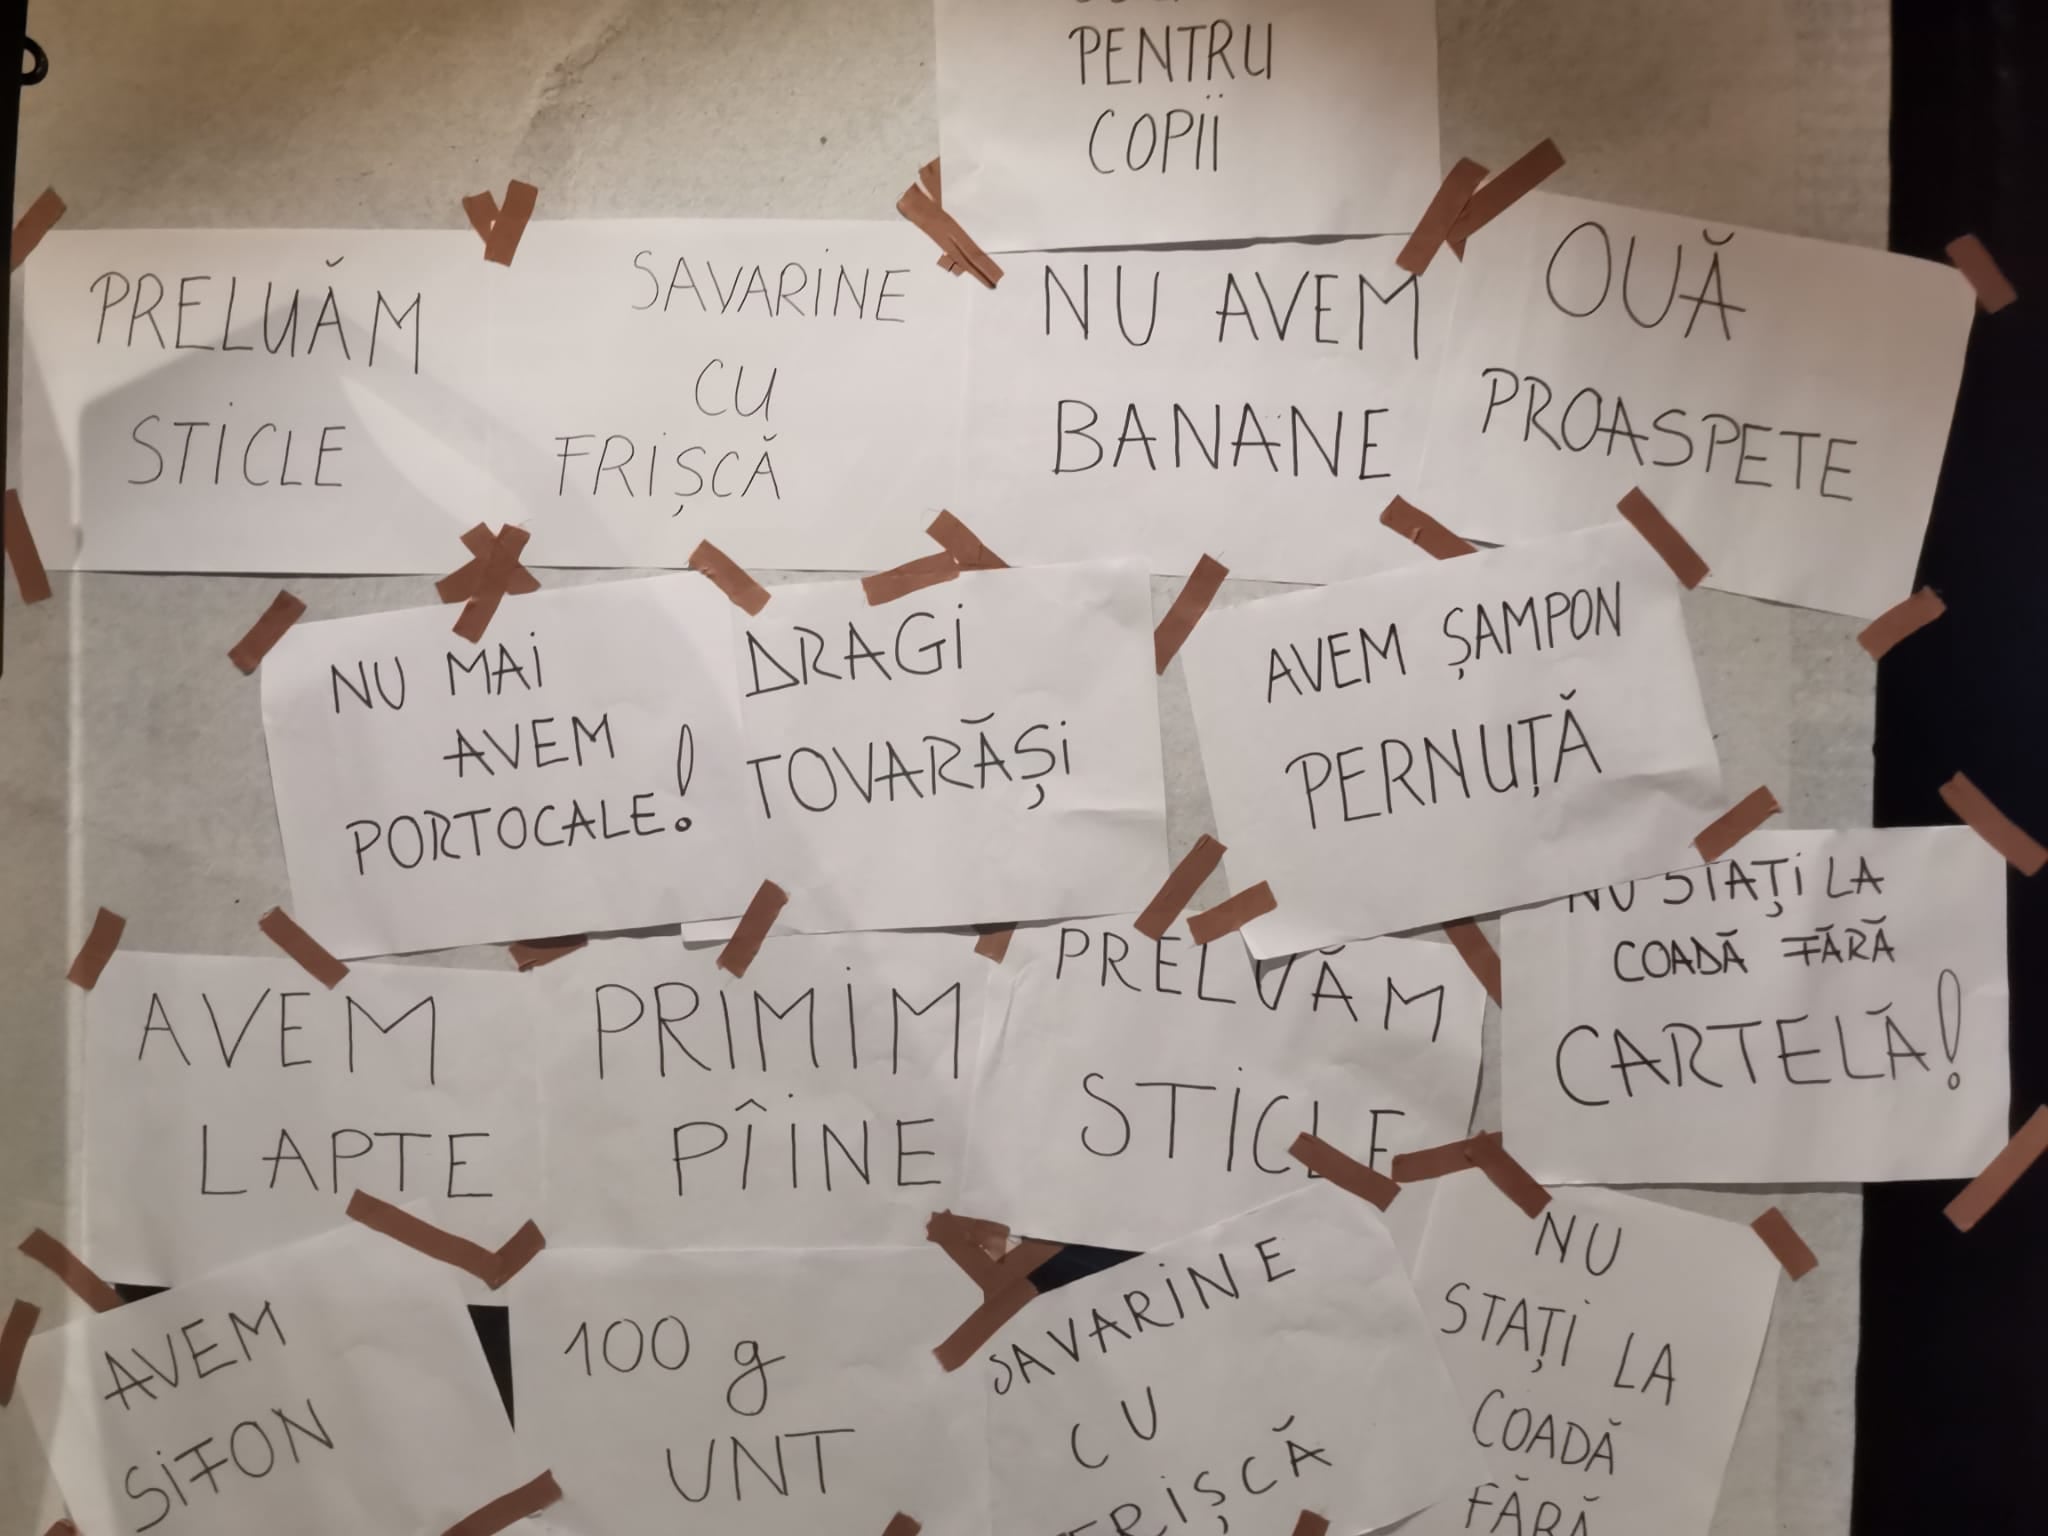 PENTRU
COPII
PRELUĂM
STICLE
SAVARINE
CU
FRIȘCĂ
NU AVEM
BANANE
OUĂ
PROASPETE
NU MAI
AVEM
PORTOCALE!
DRAGI
TOVARĂȘI
AVEM ȘAMPON
PERNUȚĂ
NU STAȚI LA
COADĂ FĂRĂ
CARTELĂ!
AVEM
LAPTE
PRIMIM
PÎINE
PRELUĂM
STICLE
AVEM
SIFON
100 g
UNT
SAVARINE
CU
FRIȘCĂ
NU
STAȚI LA
COADĂ
FĂRĂ